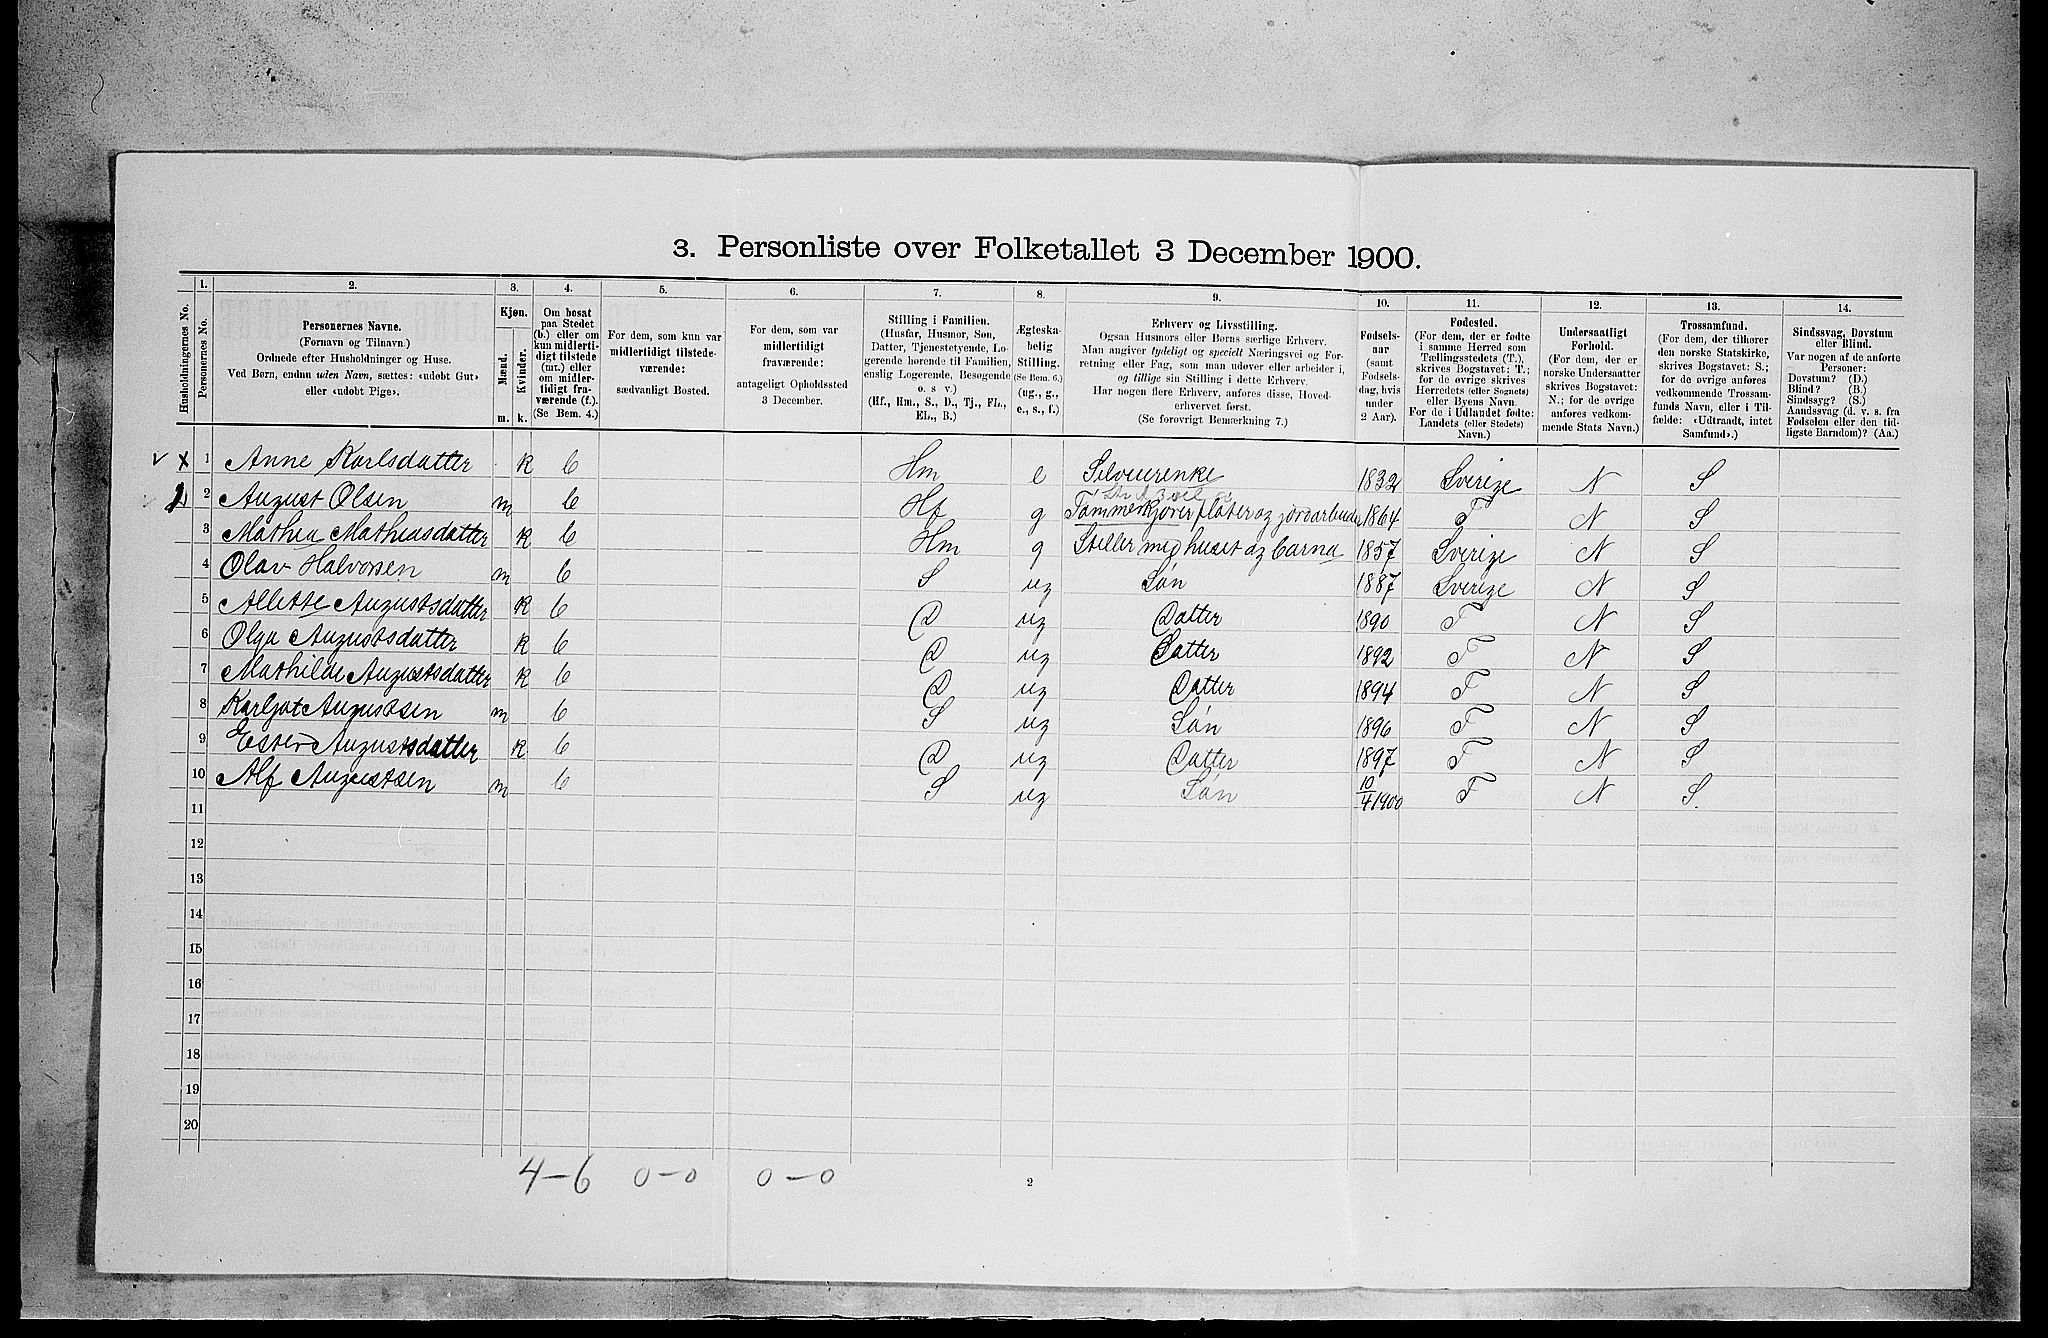 3. Personliste over Folketallet 3 December 1900.
Husholdningernes No.
1.
Personernes No.
2.
Personernes Navne.
(Fornavn og Tilnavn.)
Ordnede efter Husholdninger og Huse.
Ved Børn, endnu uden Navn, sættes: «udøbt Gut»
eller «udøbt Pige».
3.
Kjøn.
Mænd.
Kvinder.
m. k.
4.
Om bosat
paa Stedet
(b.) eller om
kun midlerti-
digt tilstede
(mt.) eller
om midler-
tidigt fra-
værende (f.).
(Se Bem. 4.)
5.
For dem, som kun var
midlertidigt tilstede-
værende:
sædvanligt Bosted.
6.
For dem, som var
midlertidigt
fraværende:
antageligt Opholdssted
3 December.
7.
Stilling i Familien.
(Husfar, Husmor, Søn,
Datter, Tjenestetyende, Lo-
gerende hørende til Familien,
enslig Logerende, Besøgende
o. s v.)
(Hf., Hm., S., D., Tj., FL.,
EL., B.)
8.
Ægteska-
belig
Stilling.
(Se Bem. 6.)
(ug., g.,
e., s., f.)
9.
Erhverv og Livsstilling.
Ogsaa Husmors eller Børns særlige Erhverv.
Man angiver tydeligt og specielt Næringsvei og For-
retning eller Fag, som man udøver eller arbeider i,
og tillige sin Stilling i dette Erhverv.
Har nogen flere Erhverv, anføres disse, Hoved-
erhvervet først.
(Se forøvrigt Bemærkning 7.)
10.
Fødsels-
aar
(samt
Fødsels-
dag, hvis
under
2 Aar).
11.
Fødested.
(For dem, der er fødte
i samme Herred som
Tællingsstedets (T.),
skrives Bogstavet: T.;
for de øvrige skrives
Herredets (eller Sognets)
eller Byens Navn.
For de i Udlandet fødte:
Landets (eller Stedets)
Navn.)
12.
Undersaatligt
Forhold.
(For dem, der er
norske Undersaatter
skrives Bogstavet:
N.; for de øvrige
anføres vedkom-
mende Stats Navn.)
13.
Trossamfund.
(For dem, der tilhører
den norske Statskirke,
skrives Bogstavet: S.;
for de øvrige anføres
vedkommende Trossam-
funds Navn, eller i Til-
fælde: «Udtraadt, intet
Samfund».)
14.
Sindssvag, Døvstum
eller Blind.
Var nogen af de anførte
Personer:
Døvstum? (D.)
Blind? (B.)
Sindssyg? (S.)
Aandssvag (d. v. s. fra
Fødselen eller den tid-
ligste Barndom)? (Aa.)
1 Anne Karlsdatter k b Hm e Selveierenke 1832 Sverige N S
2 August Olsen m b Hf g Tømmerkjører fløter og jordarbeider 1864 T N S
3 Mathea Mathiasdatter k b Hm g Steller med huset og barna 1857 Sverige N S
4 Olav Halvorsen m b S ug Søn 1887 Sverige N S
5 Allette Augustsdatter k b D ug Datter 1890 T N S
6 Olga Augustsdatter k b D ug Datter 1892 T N S
7 Mathilde Augustsdatter k b D ug Datter 1894 T N S
8 Karljot Augustsen m b S ug Søn 1896 T N S
9 Ester Augustsdatter k b D ug Datter 1897 T N S
10 Alf Augustsen m b S ug Søn 10/4 1900 T N S.
11
12
13
14
15
16
17
18
19
20
4-6 0-0 0-0
2